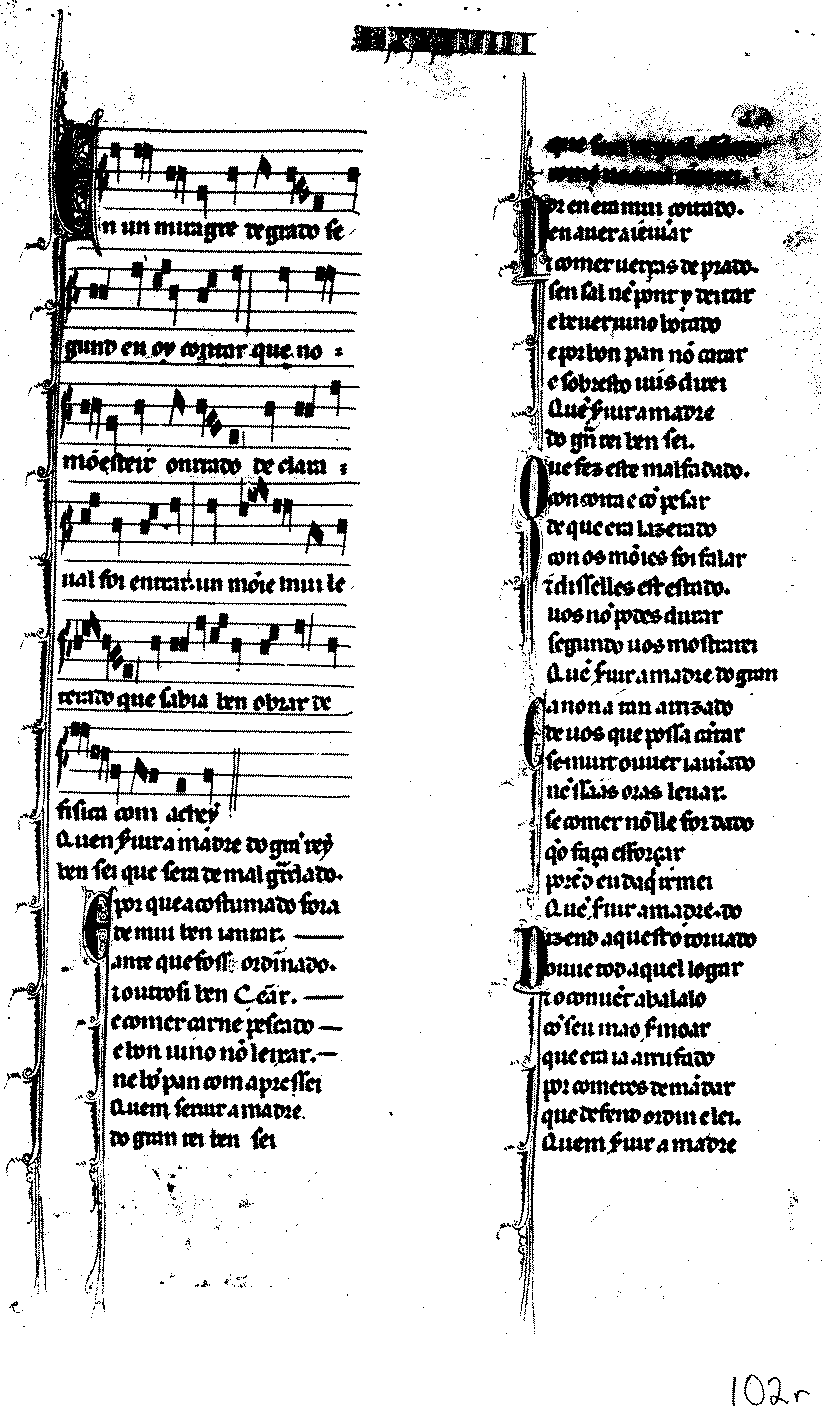 LXXXVIII
En un miragre degrado se
gund en oy contar que no
mõesteir onrrado de clara
ual foi entrar. un mõie mui le
terado que sabia ben obrar de
fisica com achey
Quen s̃uir a madre do grã rey
ben sei que sera de mal g̃rdado.
E por que acostumado fora
de mui ben iantar. —
ante que foss ordĩado.
⁊ outrosi ben Cẽar. —
e comer carne pescado —
e bon uino nõ leixar. —
ne bõ pan com apressei
Quem seruir a madre
do gran rei ben sei
que
como
Por en era mui coitado.
en auer a ieiũar
⁊ comer uerças de prado.
sen sal nẽ põer y deitar
e beuer uino botado
e por bon pan nõ catar
e sobresto uus direi
Quẽ s̃uir a madre
do grã rei ben sei.
Que fez este malfadado.
con coita e cõ pesar
de que era lazerado
con os mõies foi falar
⁊ disselles est estado.
uos nõ podes durar
segundo uos mostrarei
Quẽ s̃uir a madre do gran
Ca non a tan arrizado
de uos que possa cãtar
se muit ouuer iaiũado
nẽ ssas oras leuar.
se comer nõ lle for dado
qo faça esforçar
porẽd eu daq̃ irmei
Quẽ s̃uir a madre. do
Dizend aquesto toruado
ouue tod aquel logar
⁊ o conuẽt abalado
cõ seu mao s̃moar
que era ia arrufado
por comeres demãdar
que defend ordin e lei.
Quem s̃uir a madre
102r